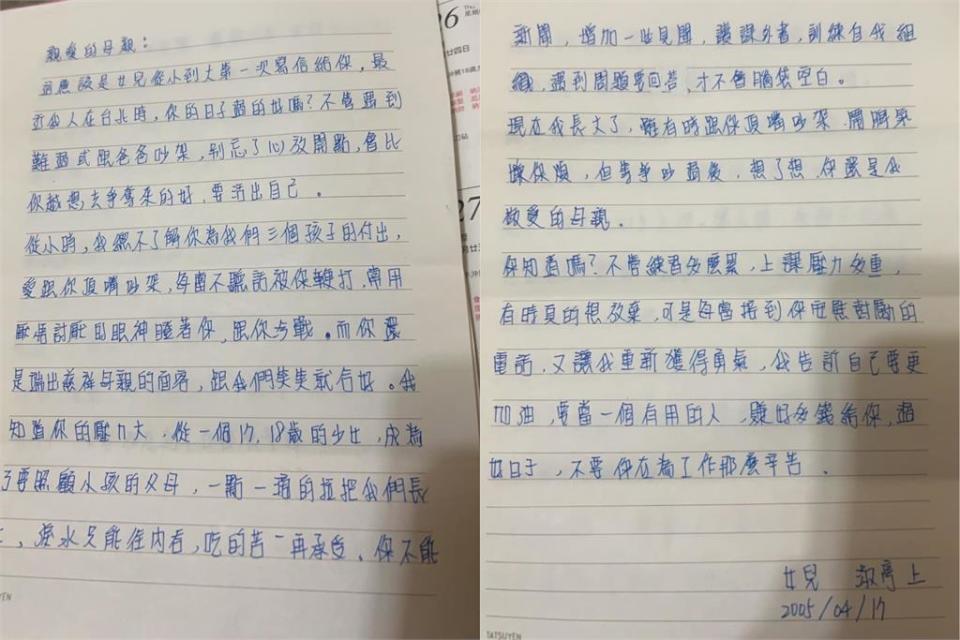 親愛的母親：
這應該是女兒從小到大第一次寫信給你，最
近我人在台北時，你的日子過的好嗎？不管遇到
難過或跟爸爸吵架，別忘了心放開點，會比
你越想去爭奪來的好，要活出自己。
從小時，我總不了解你為我們三個孩子的付出，
愛跟你頂嘴吵架，每當不聽話被你鞭打，常用
厭惡討厭的眼神瞪著你，跟你少戰。而你還
是端出慈祥母親的面容，跟我們笑笑就和好。我
知道你的壓力大，從一個17、18歲的少女，成為
了要照顧小孩的父母，一點一滴的拉把我們長
，淚水只能往內吞，吃的苦一再承受。你不能
新聞，增加一些見聞，讀課外書，訓練自我組
織，遇到問題要回答，才不會腦袋空白。
現在我長大了，雖有時跟你頂嘴吵架、鬧脾氣
嫌你煩，但每爭吵過後，想了想你還是我
敬愛的母親。
你知道嗎？不管練習多麼累，上課壓力多重，
有時真的想放棄，可是每當接到你電話對話的
電話，又讓我重新獲得勇氣，我告訴自己要更
加油，要當一個有用的人，賺好多錢給你，過
好日子，不要你在為工作那麼辛苦。
女兒 淑亭上
2005/04/17
26
27
廿四日
TATSUYEN